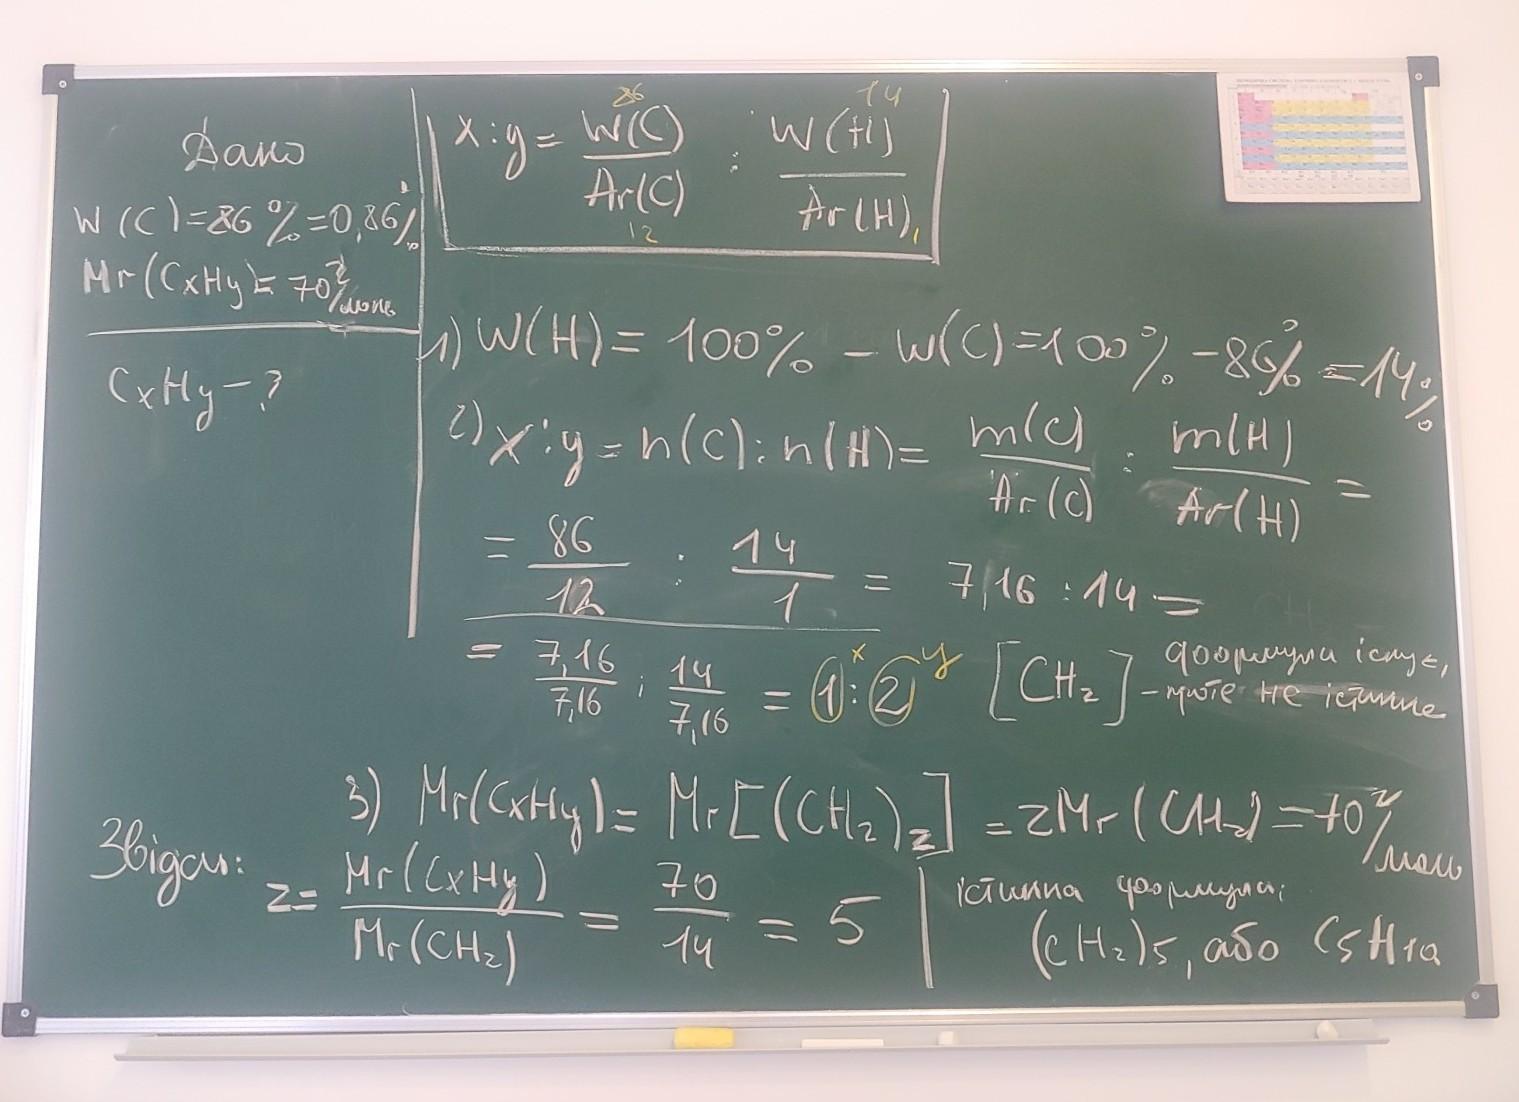 Дано
W(C)=86%=0,86%
Mr(CxHy)=70г/моль
CxHy-?
x:y= W(C)/Ar(C) : W(H)/Ar(H)
86 14
12 1
1) W(H)=100% - W(C)=100%-86%=14%
2) x:y=n(C):n(H)= m(C)/Ar(C) : m(H)/Ar(H) =
= 86/12 : 14/1 = 7,16:14=
= 7,16/7,16 : 14/7,16 = 1:2 x y [CH2] - формула існує,
проте не істинна
3) Mr(CxHy)=Mr[(CH2)z]=zMr(CH2)=70г/моль
Звідси: z= Mr(CxHy)/Mr(CH2) = 70/14 = 5
істинна формула:
(CH2)5, або C5H10